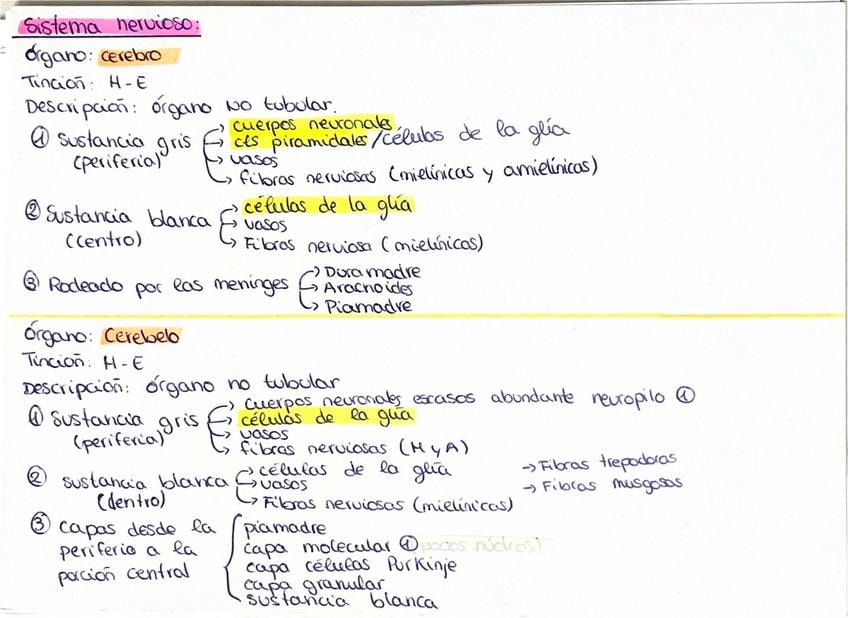 Sistema nervioso:
Órgano: cerebro
Tinción: H-E
Descripción: órgano NO tubular.
① Sustancia gris (periferia)
→ cuerpos neuronales
→ cls piramidales/células de la glía
→ vasos
→ fibras nerviosas (mielínicas y amielínicas)
② Sustancia blanca (centro)
→ células de la glía
→ vasos
→ Fibras nerviosa (mielínicas)
③ Rodeado por las meninges
→ Duramadre
→ Aracnoides
→ Piamadre
Órgano: Cerebelo
Tinción: H-E
Descripción: órgano no tubular
① Sustancia gris (periferia)
→ cuerpos neuronales escasos abundante neuropilo ①
→ células de la glía
→ vasos
→ fibras nerviosas (M y A)
② sustancia blanca (dentro)
→ células de la glía
→ vasos
→ Fibras nerviosas (mielínicas)
→ Fibras trepadoras
→ Fibras musgosas
③ capas desde la
periferia a la
porción central
piamadre
capa molecular ① (pocos núcleos)
capa células Purkinje
capa granular
sustancia blanca